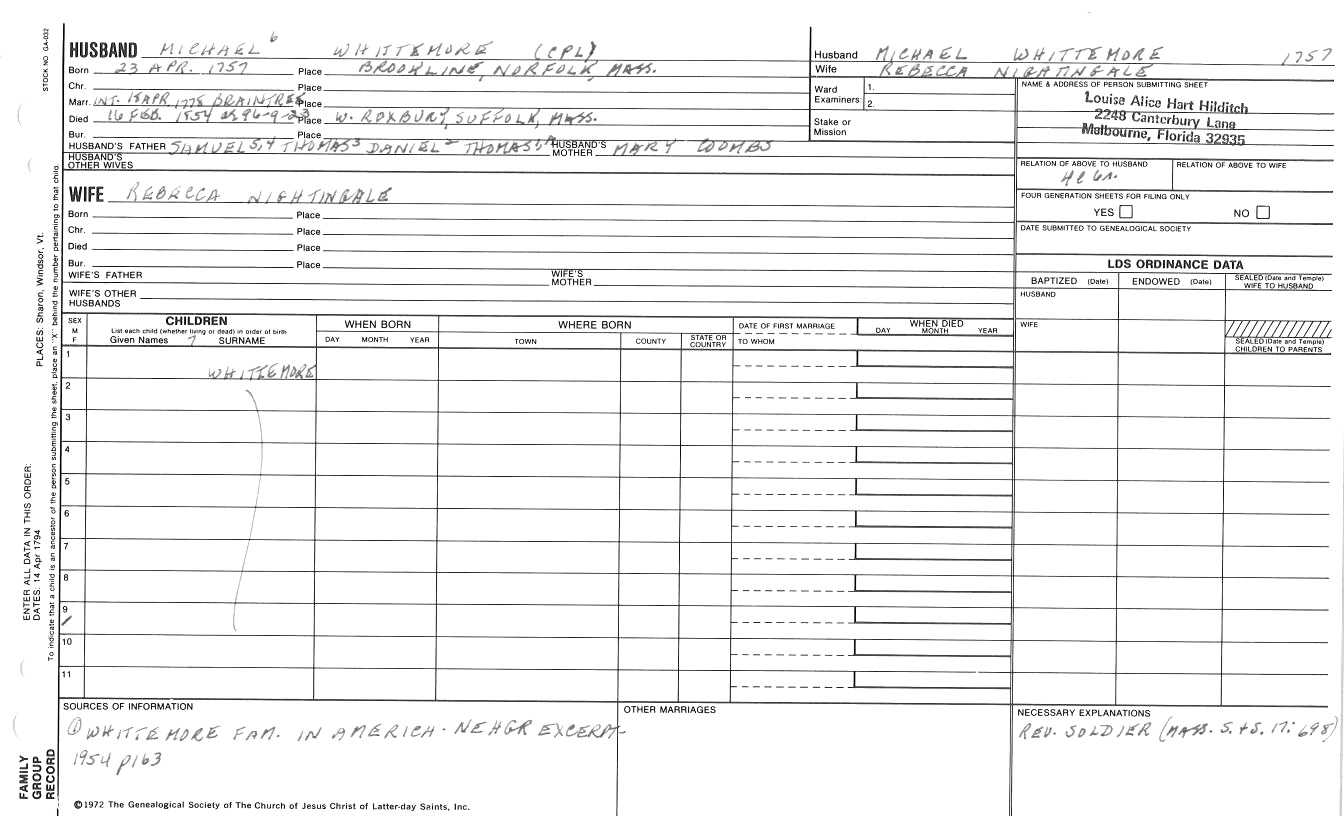 STOCK NO GA-032
HUSBAND MICHAEL 6 WHITTEMORE (CPL)
Born 23 APR. 1757 Place BROOKLINE, NORFOLK, MASS.
Chr. Place
Marr. INT. 18 APR. 1778 BRAINTREE Place
Died 16 FEB. 1854 ae 96-9-23 Place W. ROXBURY, SUFFOLK, MASS.
Bur. Place
HUSBAND'S FATHER SAMUEL 5,4 THOMAS 3 DANIEL 2 THOMAS 1 HUSBAND'S MOTHER MARY COOMBS
HUSBAND'S OTHER WIVES
WIFE REBECCA NIGHTINGALE
Born Place
Chr. Place
Died Place
Bur. Place
WIFE'S FATHER WIFE'S MOTHER
WIFE'S OTHER HUSBANDS
Husband MICHAEL WHITTEMORE 1757
Wife REBECCA NIGHTINGALE
Ward Examiners 1. 2.
Stake or Mission
NAME & ADDRESS OF PERSON SUBMITTING SHEET
Louise Alice Hart Hilditch
2248 Canterbury Lane
Melbourne, Florida 32935
RELATION OF ABOVE TO HUSBAND RELATION OF ABOVE TO WIFE
FOUR GENERATION SHEETS FOR FILING ONLY
YES NO
DATE SUBMITTED TO GENEALOGICAL SOCIETY
LDS ORDINANCE DATA
BAPTIZED (Date) ENDOWED (Date) SEALED (Date and Temple) WIFE TO HUSBAND
HUSBAND
WIFE
SEALED (Date and Temple) CHILDREN TO PARENTS
SEX M F
CHILDREN
List each child (whether living or dead) in order of birth
Given Names SURNAME
WHEN BORN
DAY MONTH YEAR
WHERE BORN
TOWN COUNTY STATE OR COUNTRY
DATE OF FIRST MARRIAGE
TO WHOM
WHEN DIED
DAY MONTH YEAR
1
WHITTEMORE
2
3
4
5
6
7
8
9
10
11
SOURCES OF INFORMATION
① WHITTEMORE FAM. IN AMERICA - NEHGR EXCERPT
1954 p163
OTHER MARRIAGES
NECESSARY EXPLANATIONS
REV. SOLDIER (MASS. S. + S. 17: 698)
©1972 The Genealogical Society of The Church of Jesus Christ of Latter-day Saints, Inc.
PLACES: Sharon, Windsor, Vt.
ENTER ALL DATA IN THIS ORDER:
DATES: 14 Apr 1794
To indicate that a child is an ancestor of the person submitting the sheet, place an "X" behind the number pertaining to that child.
FAMILY
GROUP
RECORD